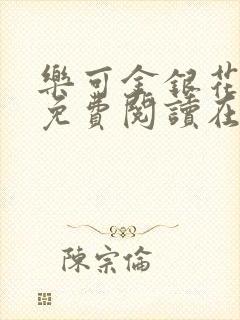 樂可金銀花
免費閱讀在
陳宗倫